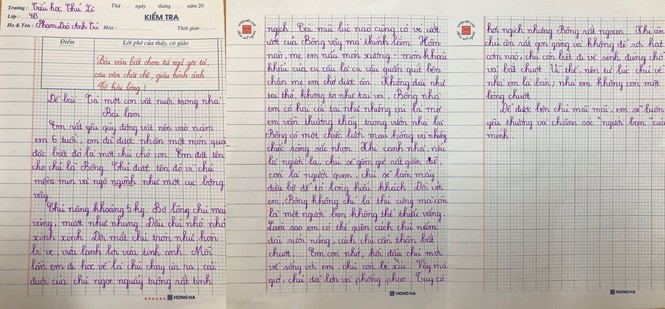 Trường: Tiểu học Thái Lê
Thứ ngày tháng năm 20
Lớp: 4B
KIỂM TRA
Họ & Tên: Phạm Đào Anh Thi Môn: Thời gian:
Điểm
Lời phê của thầy, cô giáo
Bài văn biết chọn từ ngữ gợi tả,
câu văn chắt chẽ, giàu hình ảnh
Đề bài: Tả một con vật nuôi trong nhà
Bài làm
Em rất yêu quý động vật nên vào năm
em 6 tuổi, em đã được nhận một món quà
đặc biệt đó là một chú chó con. Em đặt tên
cho chú là Bông. Thú được tên đó vì chú
mềm mịn và ngộ nghĩnh như một cục bông
vậy.
Chú nặng khoảng 5 kg. Bộ lông chú màu
vàng, mượt như nhung. Đầu chú nhỏ nhỏ
xinh xinh. Đôi mắt chú tròn như hòn
bi ve, vừa lanh lợi vừa tinh anh. Mỗi
lần em đi học về là chú chạy ùa ra, cái
đuôi của chú ngoe nguẩy trông rất tinh
HONG HA
nghịch. Cái mũi lúc nào cũng có vẻ ướt
ướt của Bông vậy mà thính lắm. Hôm
nào, mẹ em nấu món xương - món khoái
khẩu của cu cậu là cu cậu quấn quít bên
chân mẹ em chờ được ăn. Không dài như
tai thỏ, không to như tai voi, Bông nhà
em có hai cái tai như những cái lá mơ
em vẫn thường thấy trong vườn nhà là
Bông có một chiếc lưỡi màu hồng và những
chiếc răng sắc nhọn. Khi canh nhà, nếu
là người lạ, chú sẽ gầm gừ rất giận dữ,
còn là người quen, chú sẽ lon máy
đưa bộ để tỏ lòng hiếu khách. Đối với
em, Bông không chỉ là thú cưng mà còn
là một người bạn không thể thiếu vắng.
Làm sao em có thể quên cách chú nằm
dài sưởi nắng, cách chú cẩn thận bắt
chuột. Em còn nhớ, hồi đầu chú mới
về sống với em, chú còn bé xíu. Vậy mà
giờ, chú đã lớn và phổng phao. Tuy có
HONG HA
hơi nghịch nhưng Bông rất ngoan. Khi ăn
chú ăn rất gọn gàng và không để rơi hạt
cơm nào, chú còn biết đi vệ sinh đúng chỗ
và bắt chuột. Vì thế, nên từ lúc chú về
nhà em là bạn, nhà em không còn một
bóng chuột.
Để được bên chú mãi mãi, em sẽ luôn
yêu thương và chăm sóc "người bạn" của
mình.
HONG HA